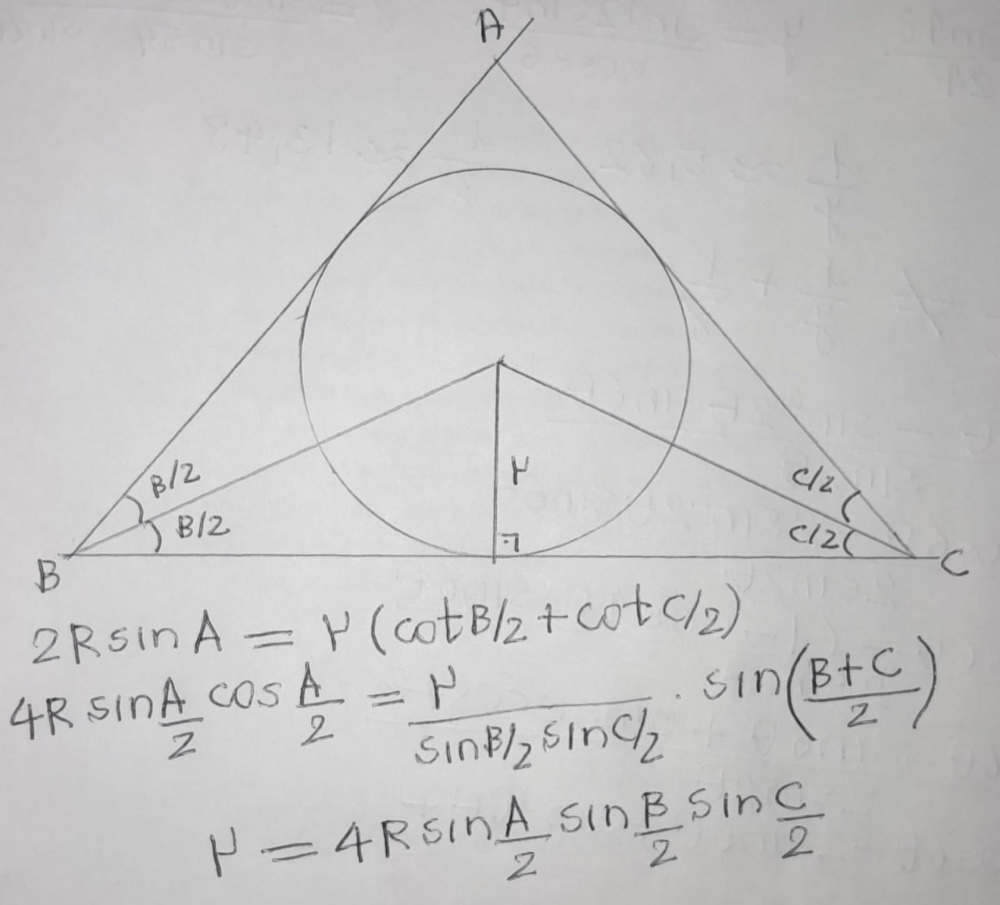 A
B/2
B/2
r
C/2
C/2
B
C
2R sin A = r (cot B/2 + cot C/2)
4R sin A/2 cos A/2 = r/(sin B/2 sin C/2) · sin((B+C)/2)
r = 4R sin A/2 sin B/2 sin C/2